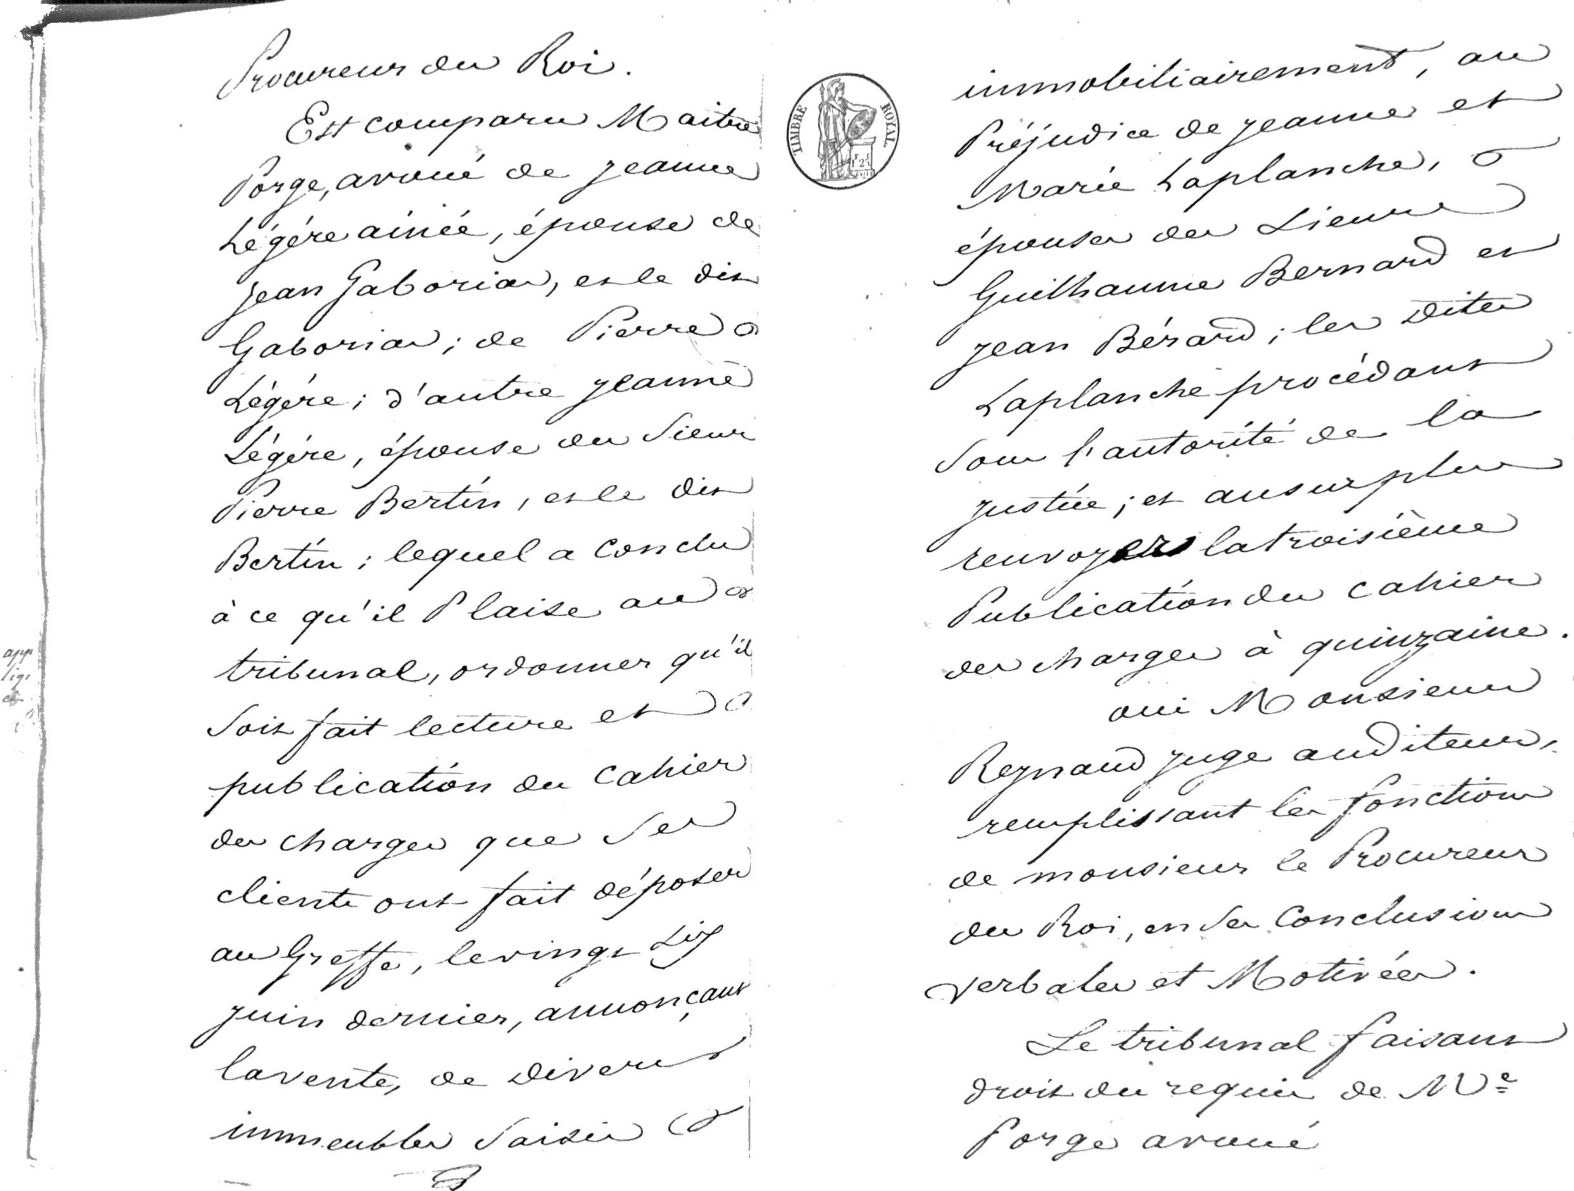 Procureur du Roi.
Est comparu Maitre
Porge, avoué de jeanne
Légére ainée, épouse de
jean Gaboriau, et le dit
Gaboriau; de Pierre
Légére; d'autre jeanne
Légére, épouse du Sieur
Pierre Bertin, et le dit
Bertin; lequel a Conclu
à ce qu'il Plaise au
tribunal, ordonner qu'il
Soit fait lecture et
publication du Cahier
des charges que Ses
clients ont fait déposer
au Greffe, le vingt Six
juin dernier, annonçant
la vente, de divers
immeubles Saisis
immobiliairement, au
Préjudice de jeanne et
Marie Laplanche,
épouses des Sieurs
Guilhaume Bernard et
jean Bérard; les dites
Laplanche procédant
Sous l'autorité de la
justice; et au surplus
renvoyer la troisième
Publication du cahier
des charges à quinzaine.
oui Monsieur
Reynaud juge auditeur,
remplissant les fonctions
de monsieur le Procureur
du Roi, en Ses Conclusions
verbales et Motivées.
Le tribunal faisant
droit du requis de Me
Porge avoué
TIMBRE ROYAL